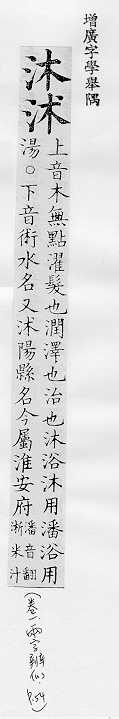 增廣字學舉隅
沐
沭
上音木無點濯髮也潤澤也治也沐浴沐用潘浴用
湯○下音術水名又沭陽縣名今屬淮安府
潘音翻
淅米汁
(卷一兩字辨似) P.54